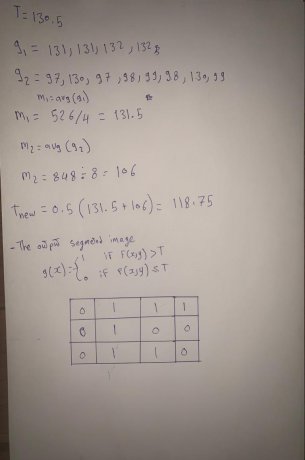 T = 130.5
g₁ = 131, 131, 132, 132
g₂ = 97, 130, 97, 98, 99, 98, 130, 99
m₁ = avg(g₁)
m₁ = 526/4 = 131.5
m₂ = avg(g₂)
m₂ = 848 ÷ 8 = 106
Tnew = 0.5 (131.5 + 106) = 118.75
- The output segmented image
g(x) = { 1 if f(x,y) > T
0 if f(x,y) ≤ T
0 1 1 1
0 1 0 0
0 1 1 0